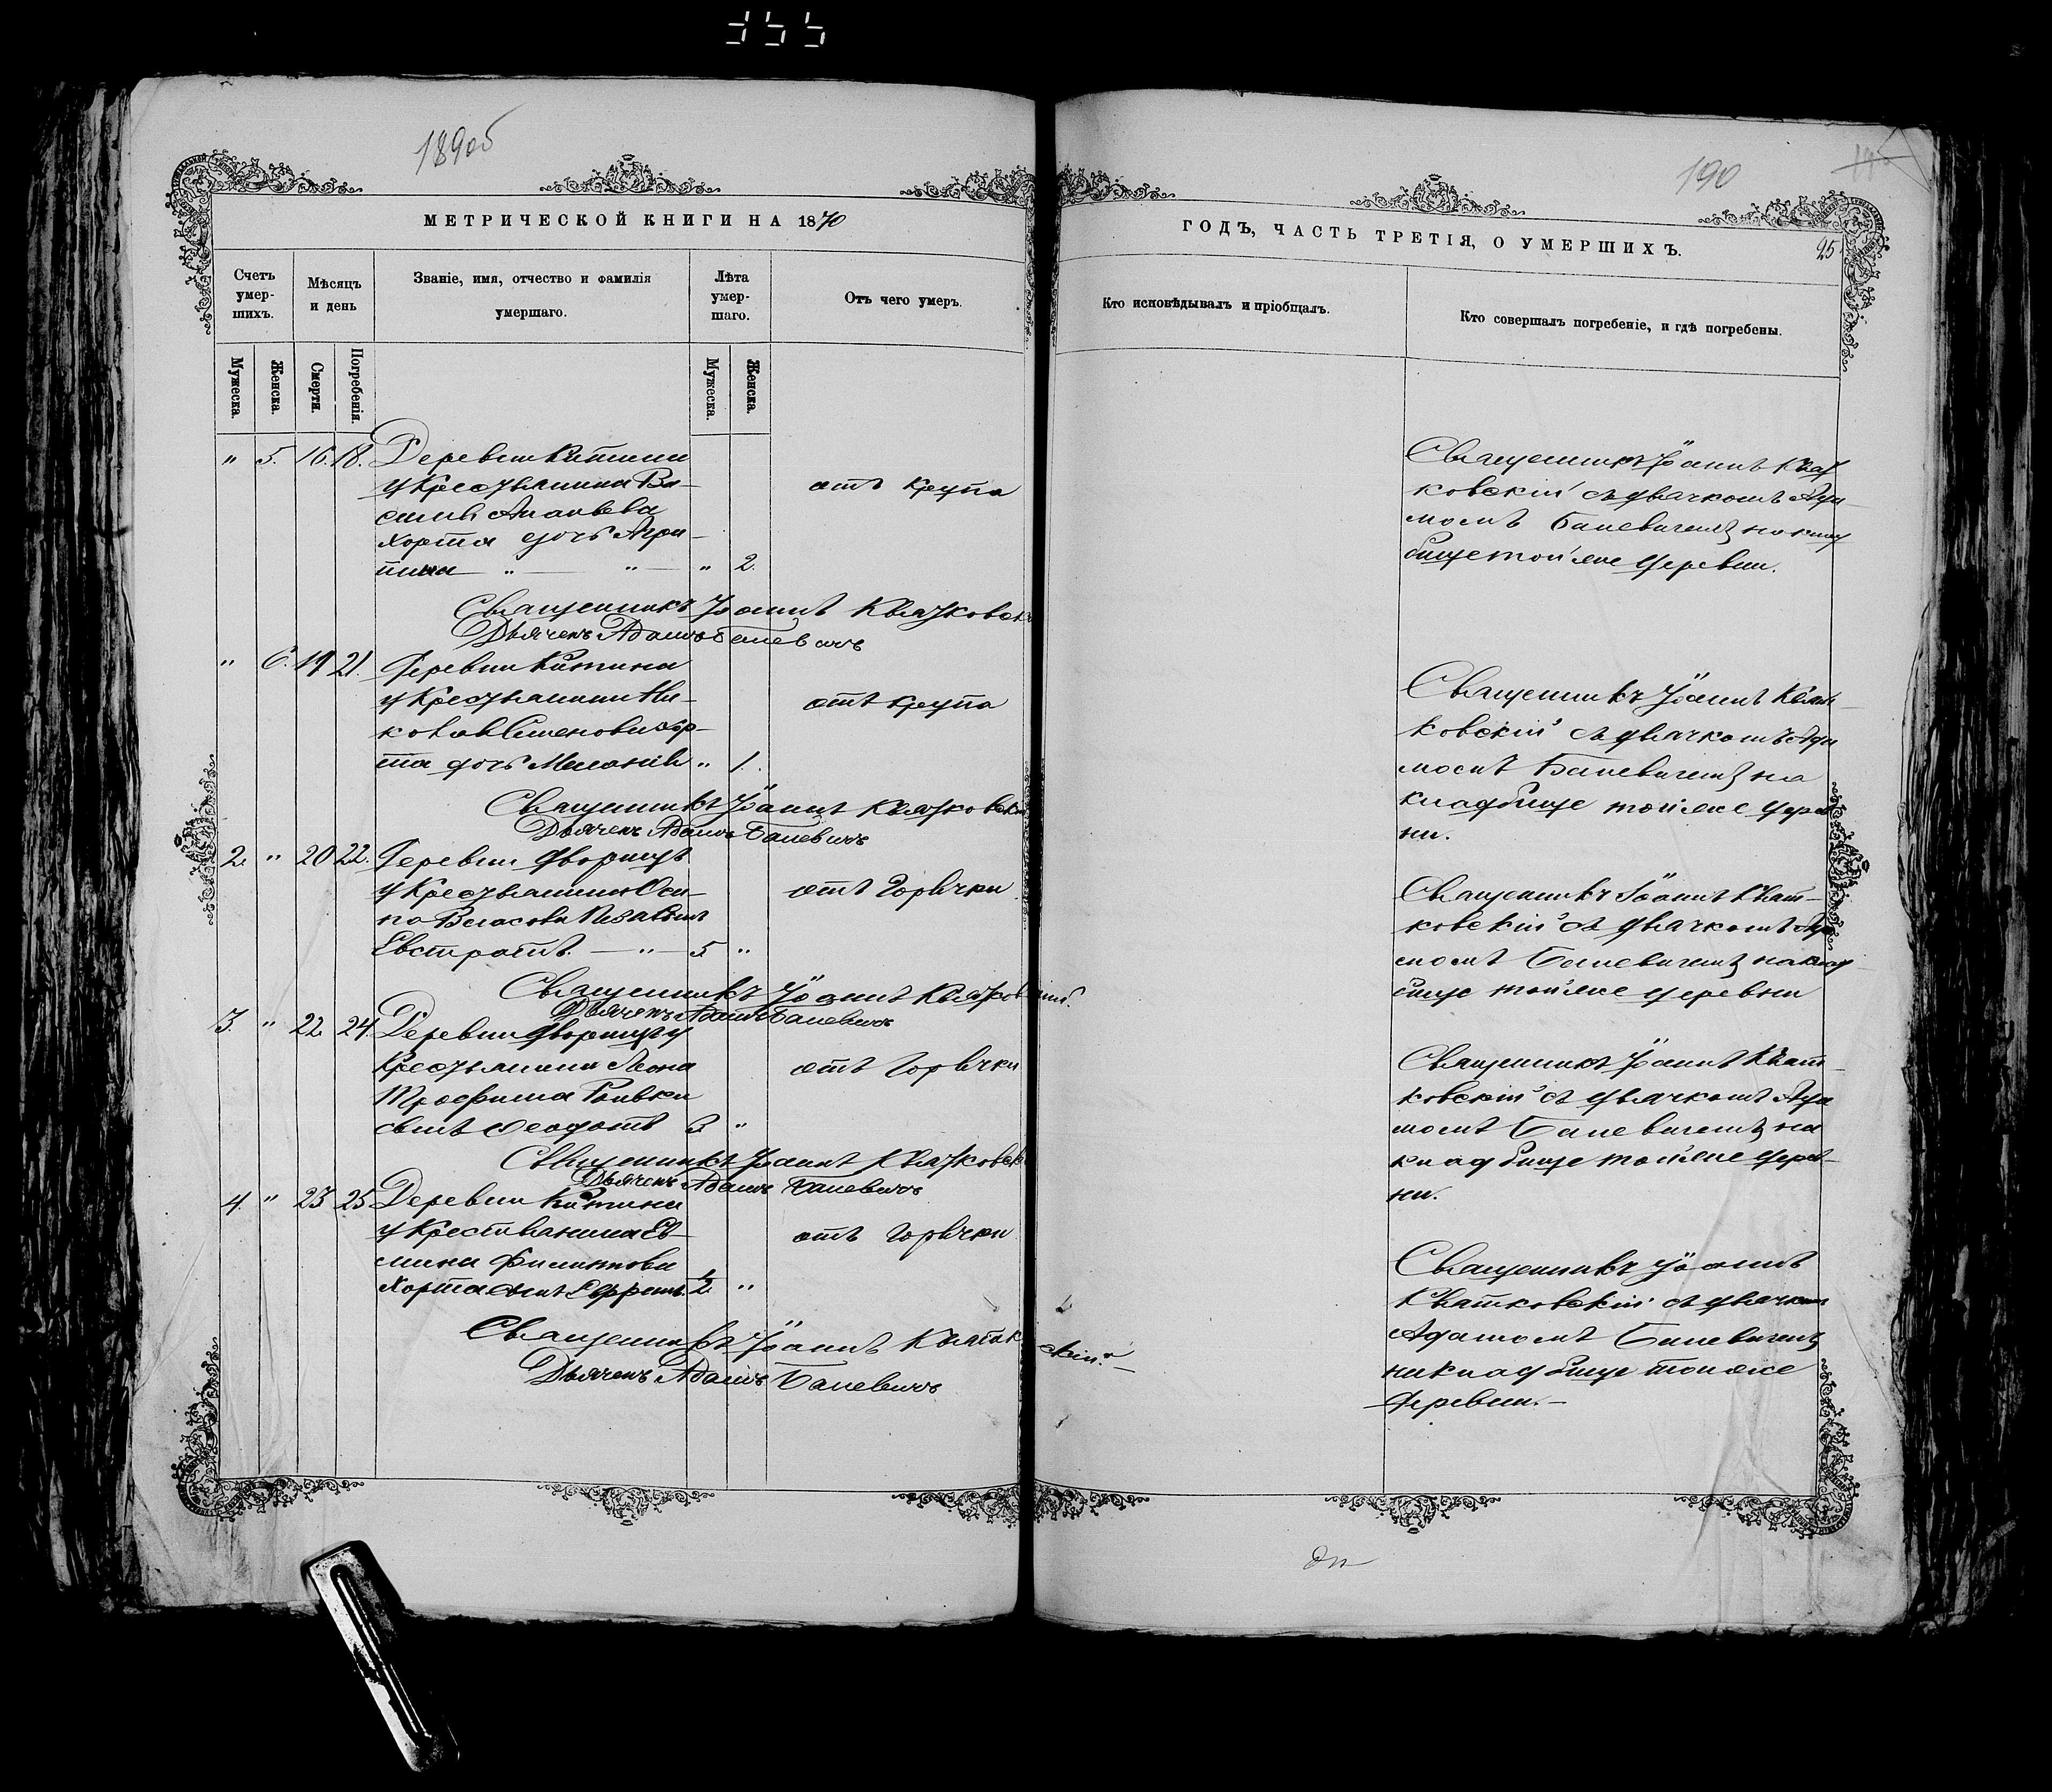 355
189об
190
МЕТРИЧЕСКОЙ КНИГИ НА 1870
ГОДЪ, ЧАСТЬ ТРЕТІЯ, О УМЕРШИХЪ.
25
Счетъ умер-шихъ.
Мѣсяцъ и день
Званіе, имя, отчество и фамилія
умершаго.
Лѣта умер-шаго.
Отъ чего умеръ.
Кто исповѣдывалъ и пріобщалъ.
Кто совершалъ погребеніе, и гдѣ погребены.
Мужеска.
Женска.
Смерти.
Погребенія.
Мужеска.
Женска.
" 5. 16. 18. Деревни
у Крестьянина Ва-
силія Ананьева
Хорта дочь Агри-
пина — " — " — " 2.
отъ крупа
Священникъ Іоаннъ Квят
ковскій съ дьячкомъ Ада
момъ Баневичемъ на клад
бище той же деревни.
Священникъ Іоаннъ Квятковск
Дьячекъ Адамъ Баневичъ
" 6. 19 21. Деревни
у Крестьянина Ни-
Семенова Хор-
та дочь Меланія " 1.
отъ крупа
Священникъ Іоаннъ Квят
ковскій съ дьячкомъ Ада
момъ Баневичемъ на
кладбище той же дерев
ни.
Священникъ Іоаннъ Квятковск
Дьячекъ Адамъ Баневичъ
2. " 20 22. Деревни Дворищъ
у Крестьянина Оси-
па Власова
Евстратъ. — " — 5 "
отъ горячки
Священникъ Іоаннъ Квят-
ковскій съ дьячкомъ Ада
момъ Баневичемъ на клад
бище той же деревни
Священникъ Іоаннъ Квятковскій.
Дьячекъ Адамъ Баневичъ
3. " 22 24. Деревни Дворищъ у
Крестьянина Леона
Трофима
сынъ Феодотъ 3 "
отъ горячки
Священникъ Іоаннъ Квят
ковскій съ дьячкомъ Ада
момъ Баневичемъ на
кладбище той же дерев-
ни.
Священникъ Іоаннъ Квятковск
Дьячекъ Адамъ Баневичъ
4. " 23 25 Деревни
у Крестьянина Ев-
мина Филиппова
Хорта сынъ Ефремъ ½ "
отъ горячки
Священникъ Іоаннъ
Квятковскій съ дьячкомъ
Адамомъ Баневичемъ
на кладбище той же
деревни.—
Священникъ Іоаннъ Квятковскій.—
Дьячекъ Адамъ Баневичъ